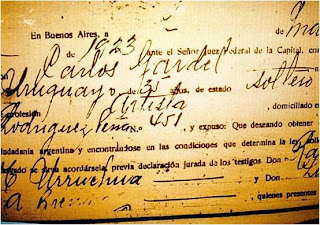 En Buenos Aires, a de Ma
de 1923 ante el Señor Juez Federal de la Capital, com
Carlos Gardel
Uruguayo de 35 años, de estado soltero
profesión Artista, domiciliado en
Rodriguez Peña n.° 451, y expuso: Que deseando obtener
iudadanía argentina y encontrándose en las condiciones que determina la ley
uzgado se sirva acordársela, previa declaración jurada de los testigos Don
Urruchua y Don
, quienes presentes